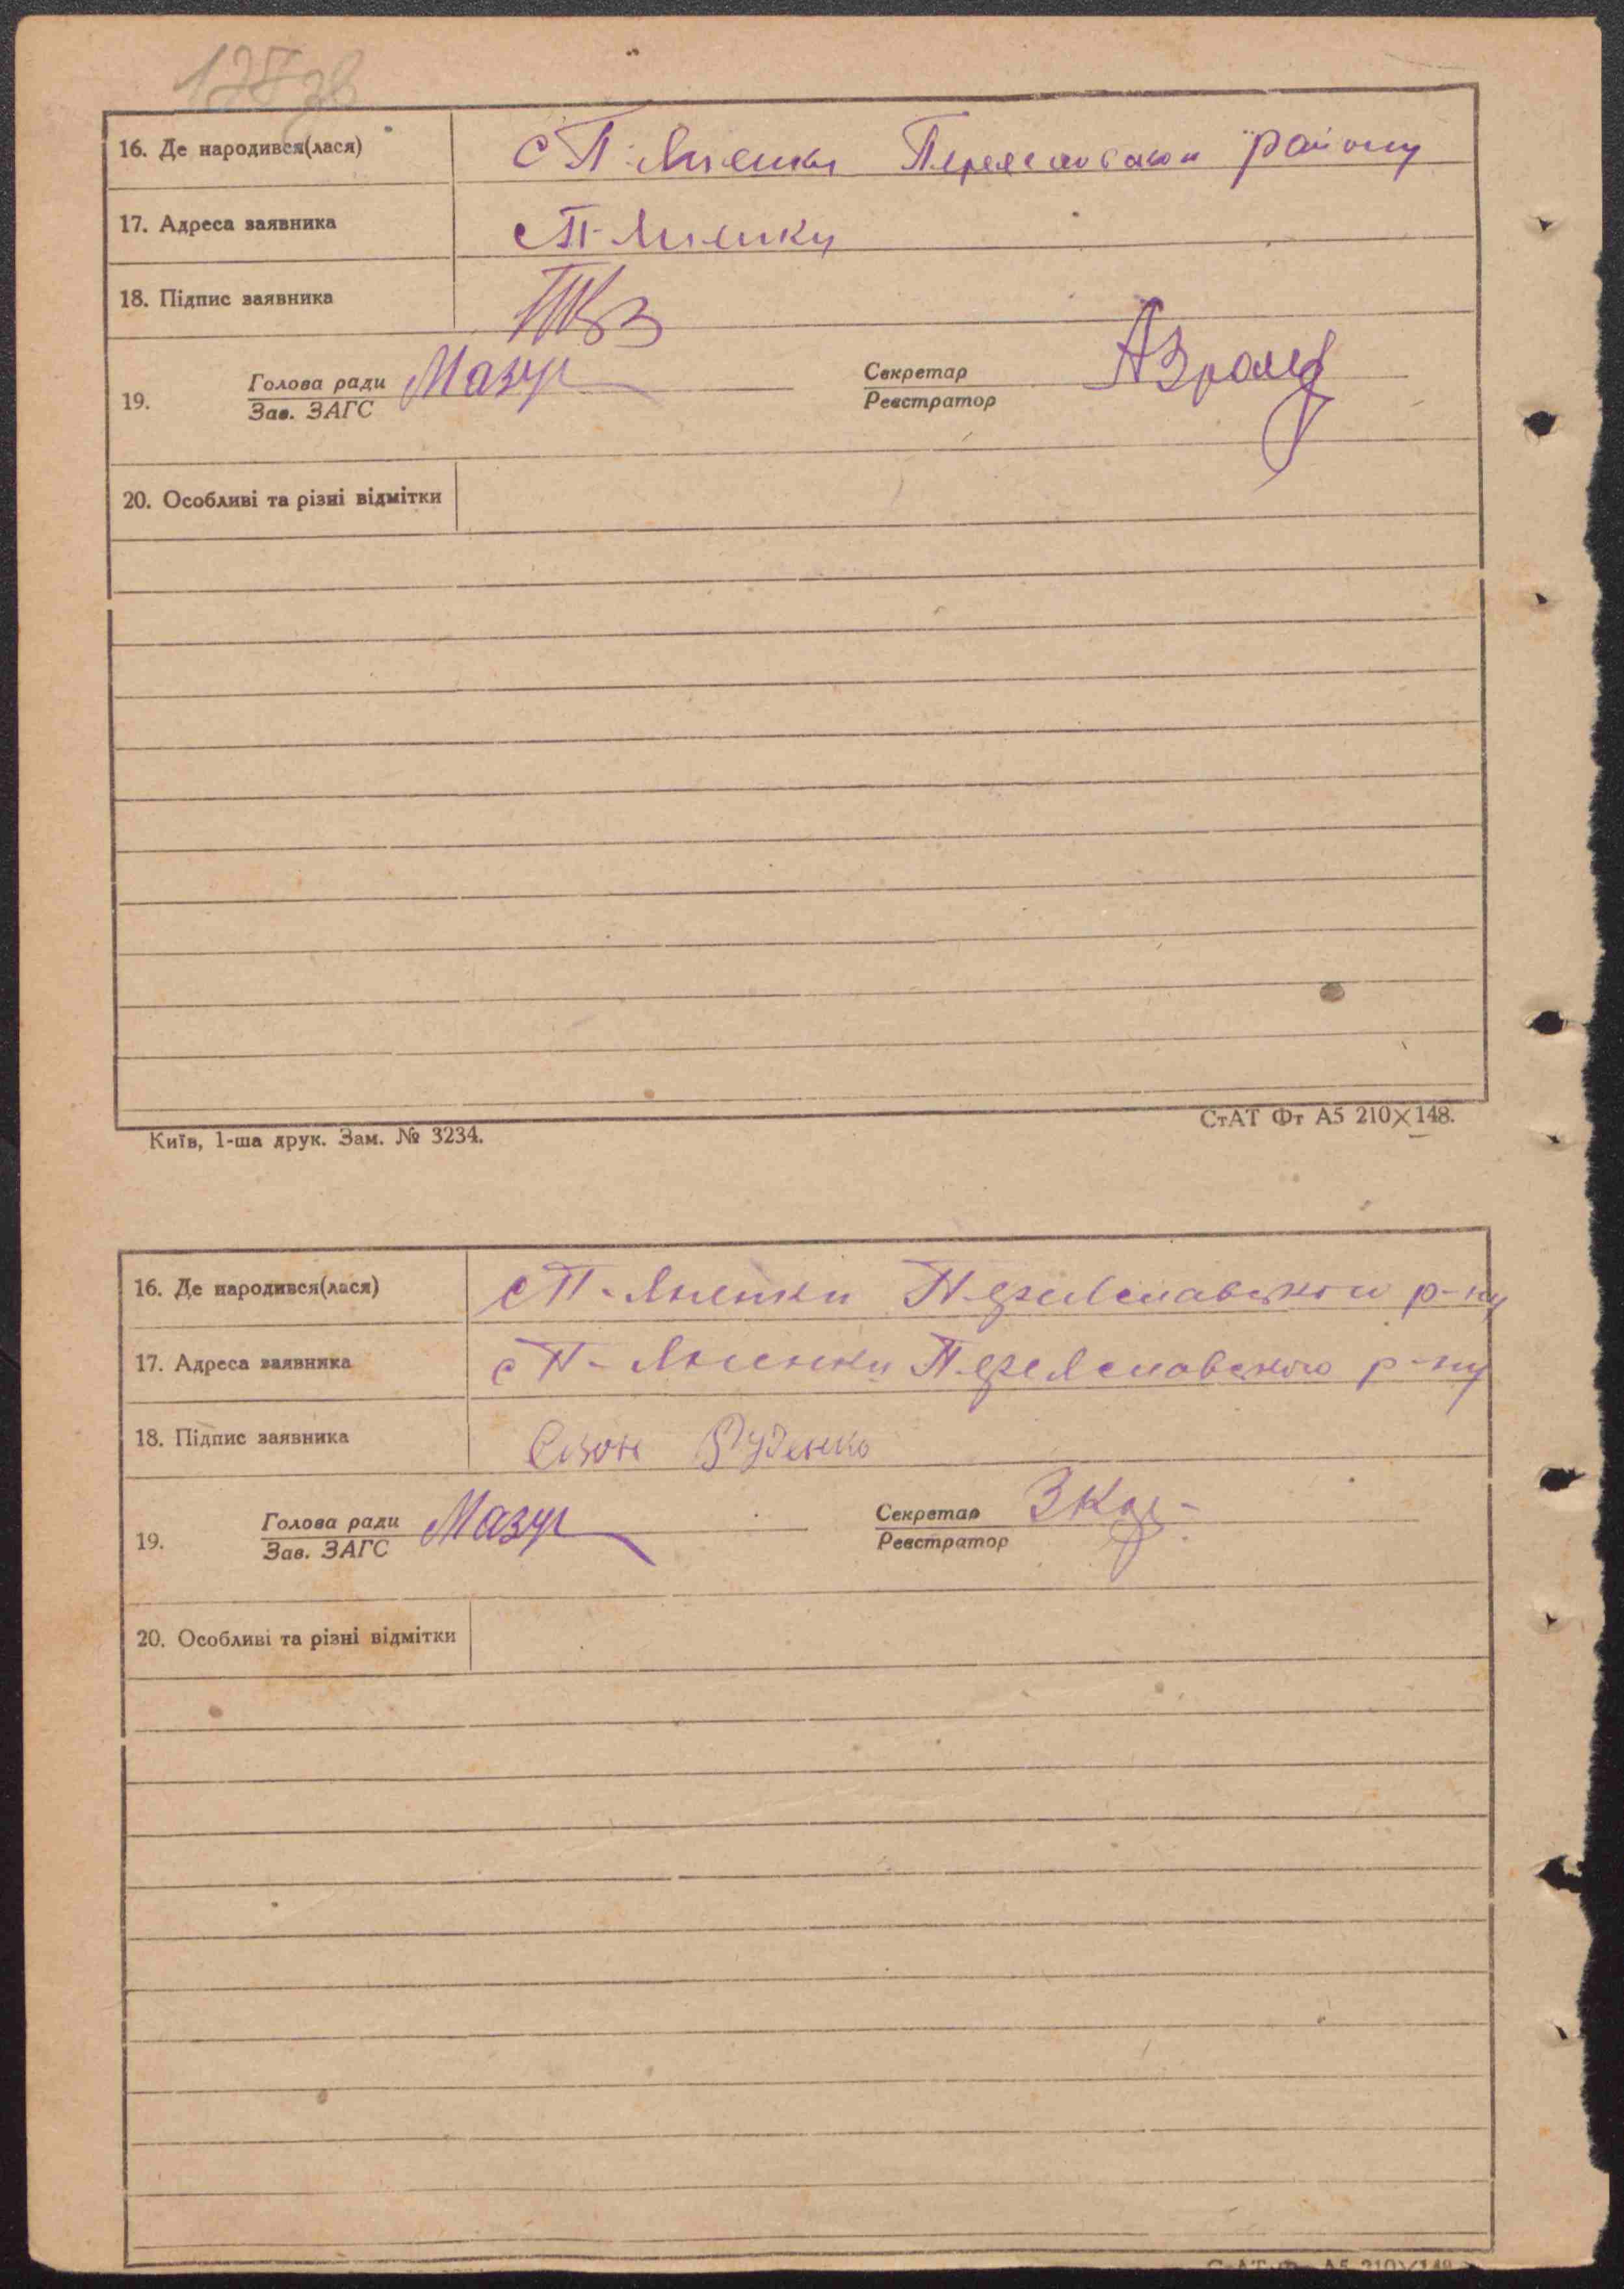 178зв
16. Де народився(лася) с П-Лисенки Переяславского району
17. Адреса заявника с П-Лисенки
18. Підпис заявника
19. Голова ради Мазур Секретар
Зав. ЗАГС Реєстратор
20. Особливі та різні відмітки
Київ, 1-ша друк. Зам. № 3234. СтАТ Фт А5 210×148.
16. Де народився(лася) с П-Лисенки Переяславського р-ну
17. Адреса заявника с П-Лисенки Переяславского р-ну
18. Підпис заявника Руденко
19. Голова ради Мазур Секретар
Зав. ЗАГС Реєстратор
20. Особливі та різні відмітки
СтАТ Фт А5 210×148